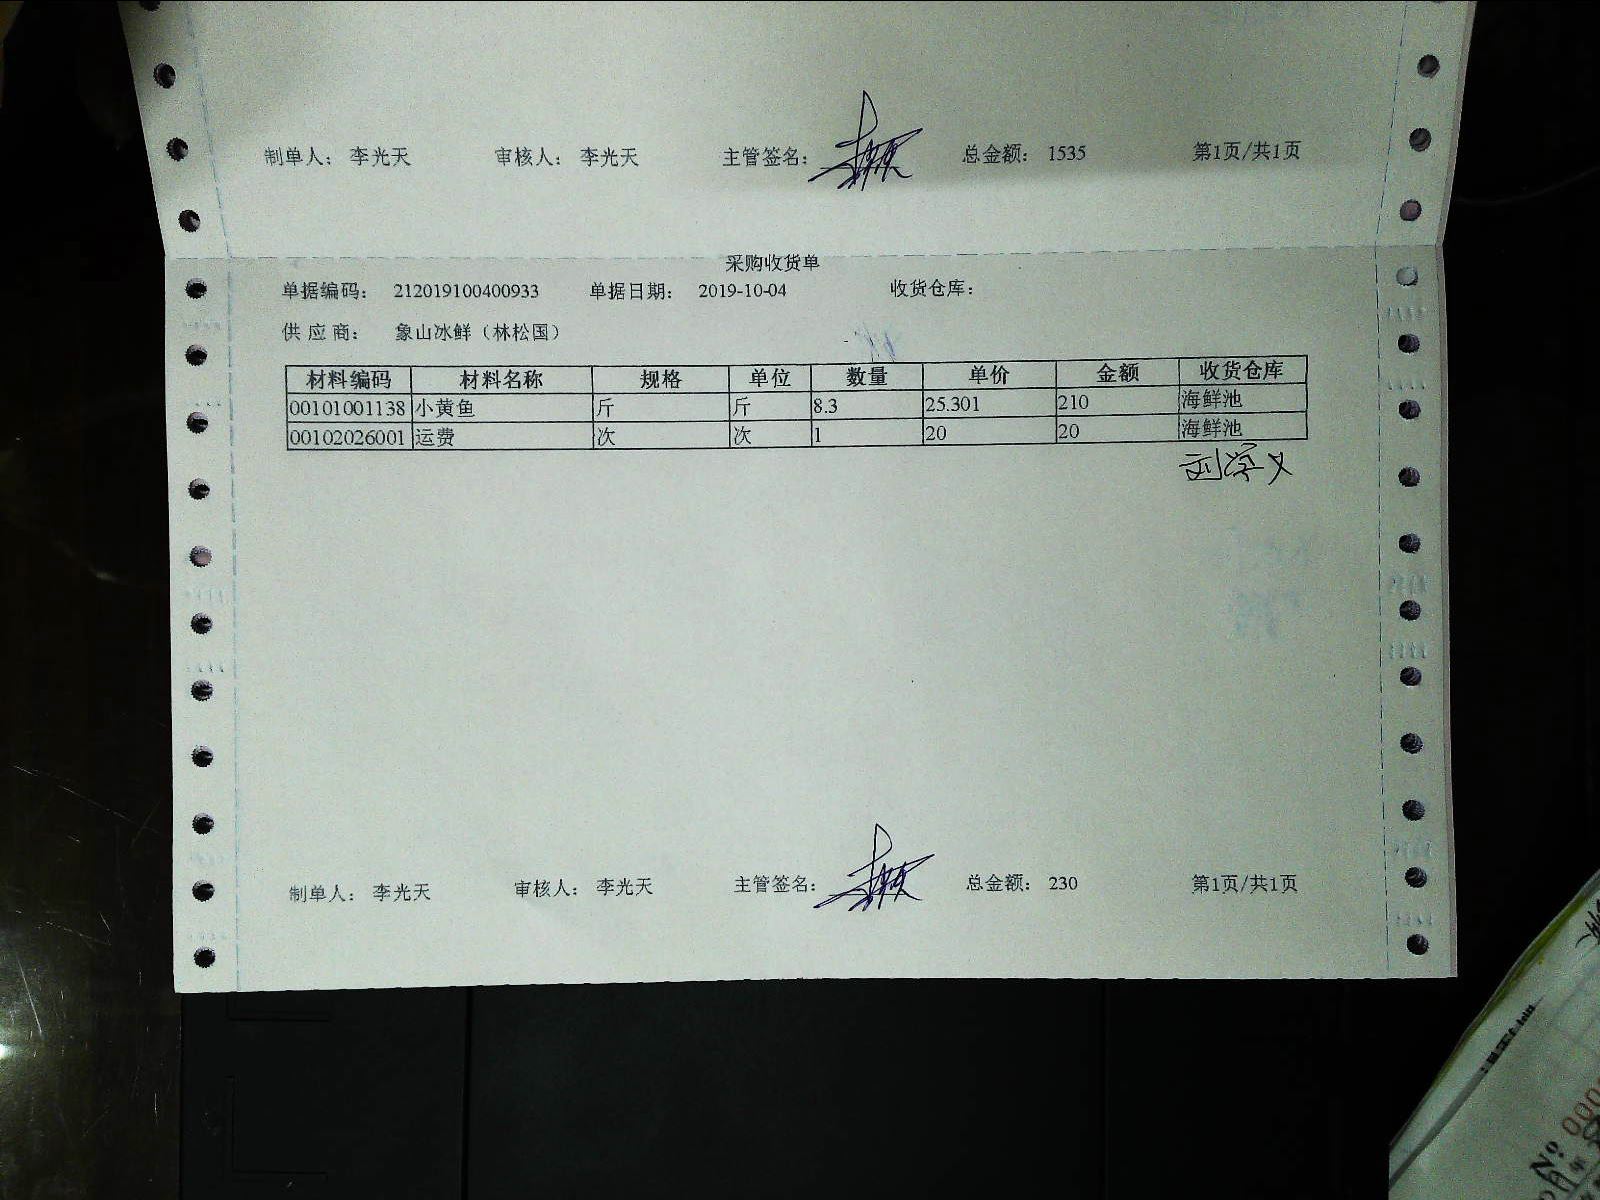 制单人: 李光天 审核人: 李光天 主管签名: 总金额: 1535 第1页/共1页
采购收货单
单据编码: 212019100400933 单据日期: 2019-10-04 收货仓库:
供应商: 象山冰鲜（林松国）
材料编码 材料名称 规格 单位 数量 单价 金额 收货仓库
00101001138 小黄鱼 斤 斤 8.3 25.301 210 海鲜池
00102026001 运费 次 次 1 20 20 海鲜池
刘学义
制单人: 李光天 审核人: 李光天 主管签名: 总金额: 230 第1页/共1页